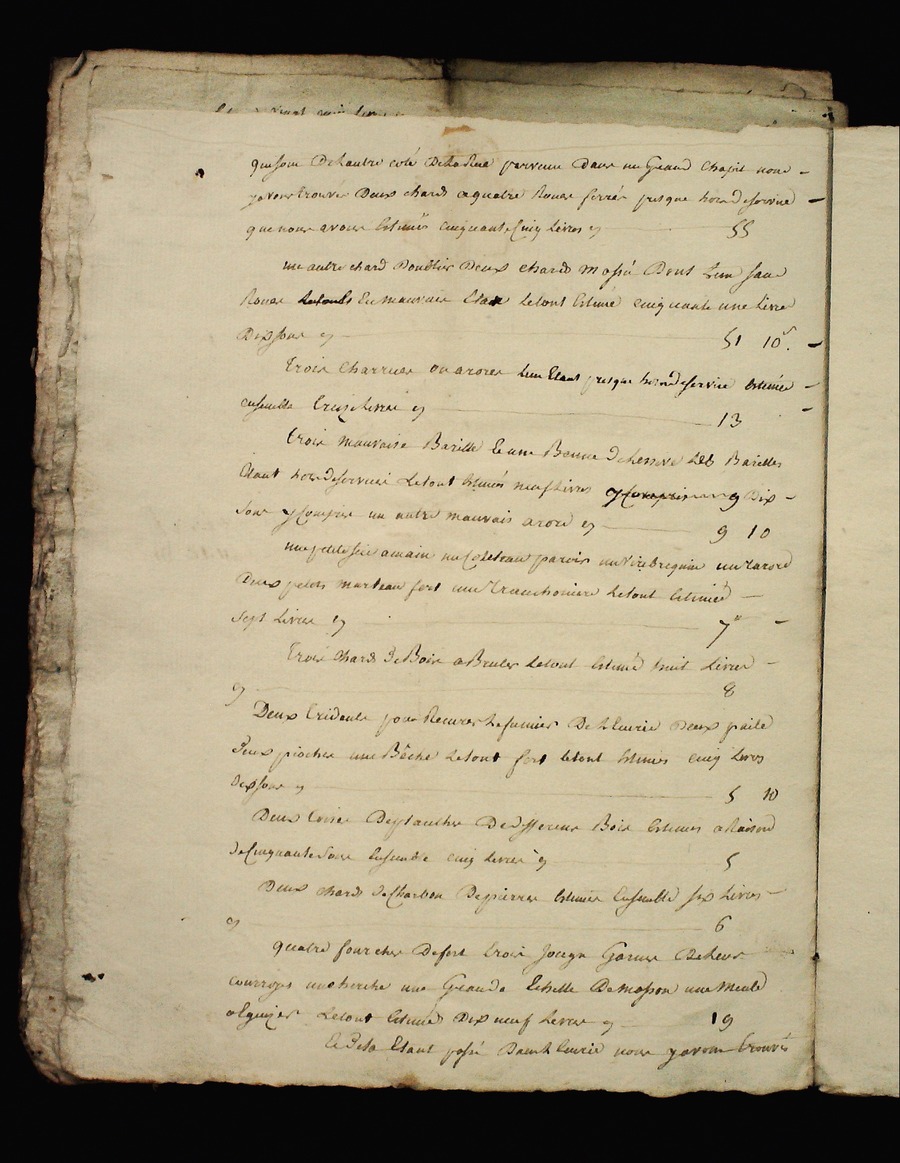 qui sont de l'autre coté de la Rue parvenu dans un Grand chapit nous
y avons trouvés Deux chards a quatre Roues ferrés presque hors de service
que nous avons Estimés cinquante Cinq Livres cy 55
un autre chard Deux chards Dont l'un sans
Roues le tout En mauvais Etat Le tout Estimé cinquante une Livre
Dix sous cy 51 10s.
Trois charrues ou arores l'un Etant presque hors de service Estimés
ensemble treize Livres cy 13
trois mauvaise Barille Et une Benne de Lessive Les Barilles
Etant hors de service Le tout Estimés neuf Livres y Compris 9 Dix
sous y Compris un autre mauvais arore cy 9 10
une petite sie a main un Couteau parois un Virebrequin un Tarord
Deux petits marteau fort une Tranchoniere Le tout Estimé
Sept Livres cy 7
trois chards de Bois a Bruler Le tout Estimé huit Livres
cy 8
Deux tridents pour Recurer Le fumier De L'Ecurie Deux paile
Deux pioches une Bêche Le tout fort le tout Estimés cinq Livres
dix sous cy 5 10
Deux toises De plauches De differens Bois Estimés a Raison
de Cinquante sous Ensemble cinq Livres cy 5
Deux chards de Charbon De pierres Estimés Ensemble six Livres
cy 6
quatre fourches De fert trois Jougs Garnis De Leurs
courroyes une herche une Grande Echelle De masson une Meule
a Eguizer Le tout Estimés Dix neuf Livres cy 19
Et De la Etant passé Dans L'Ecurie nous y avons trouvés